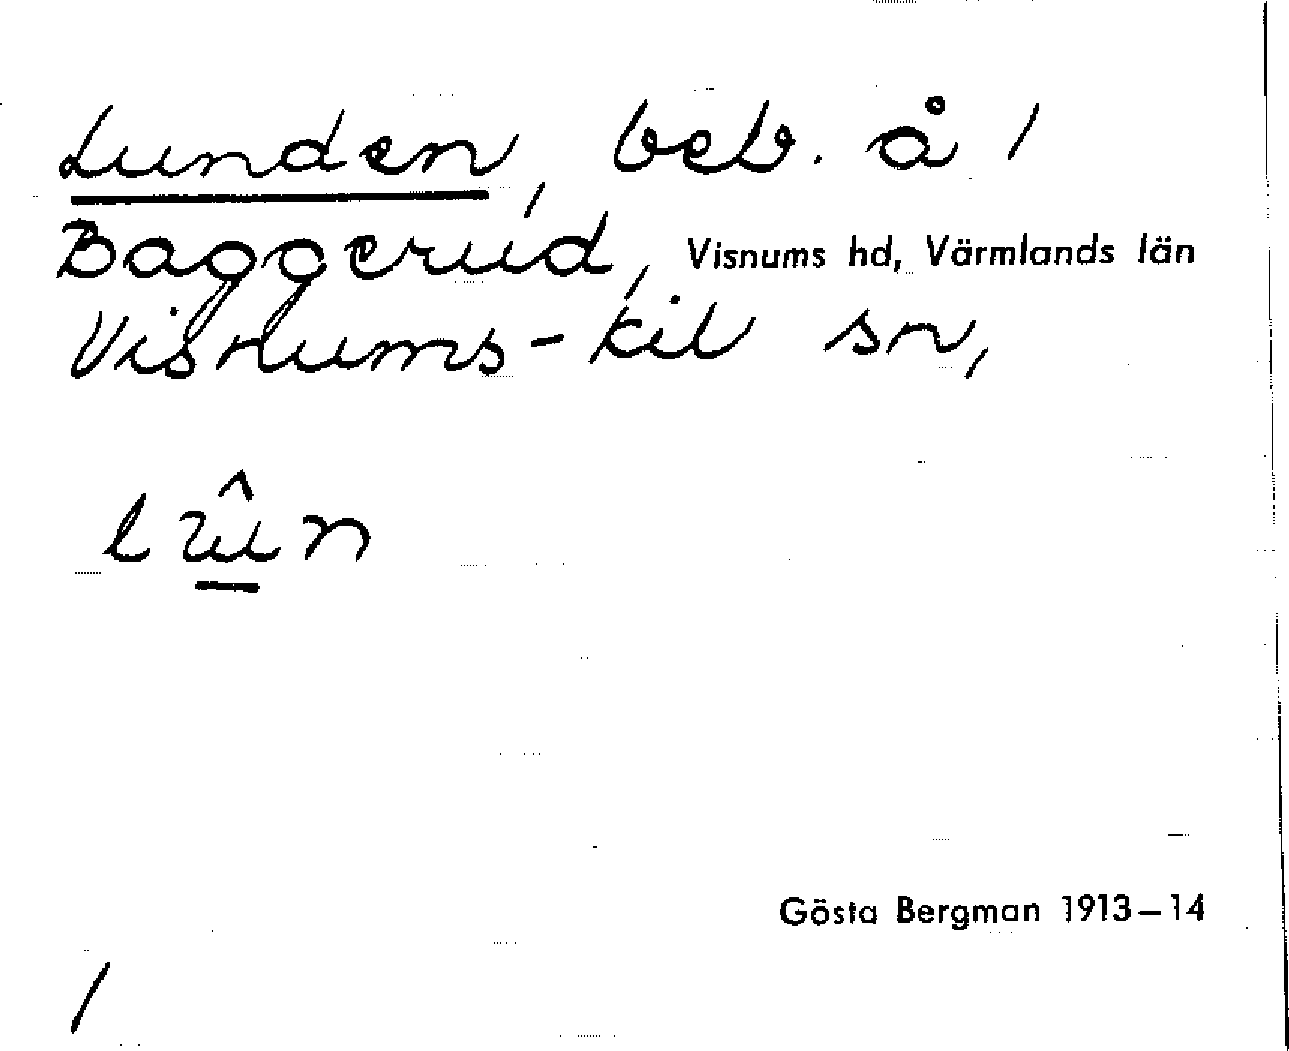 Lunden, beb. å /
Baggerud, Visnums hd, Värmlands län
Visnums-Kil sn,
lûn
Gösta Bergman 1913–14
/